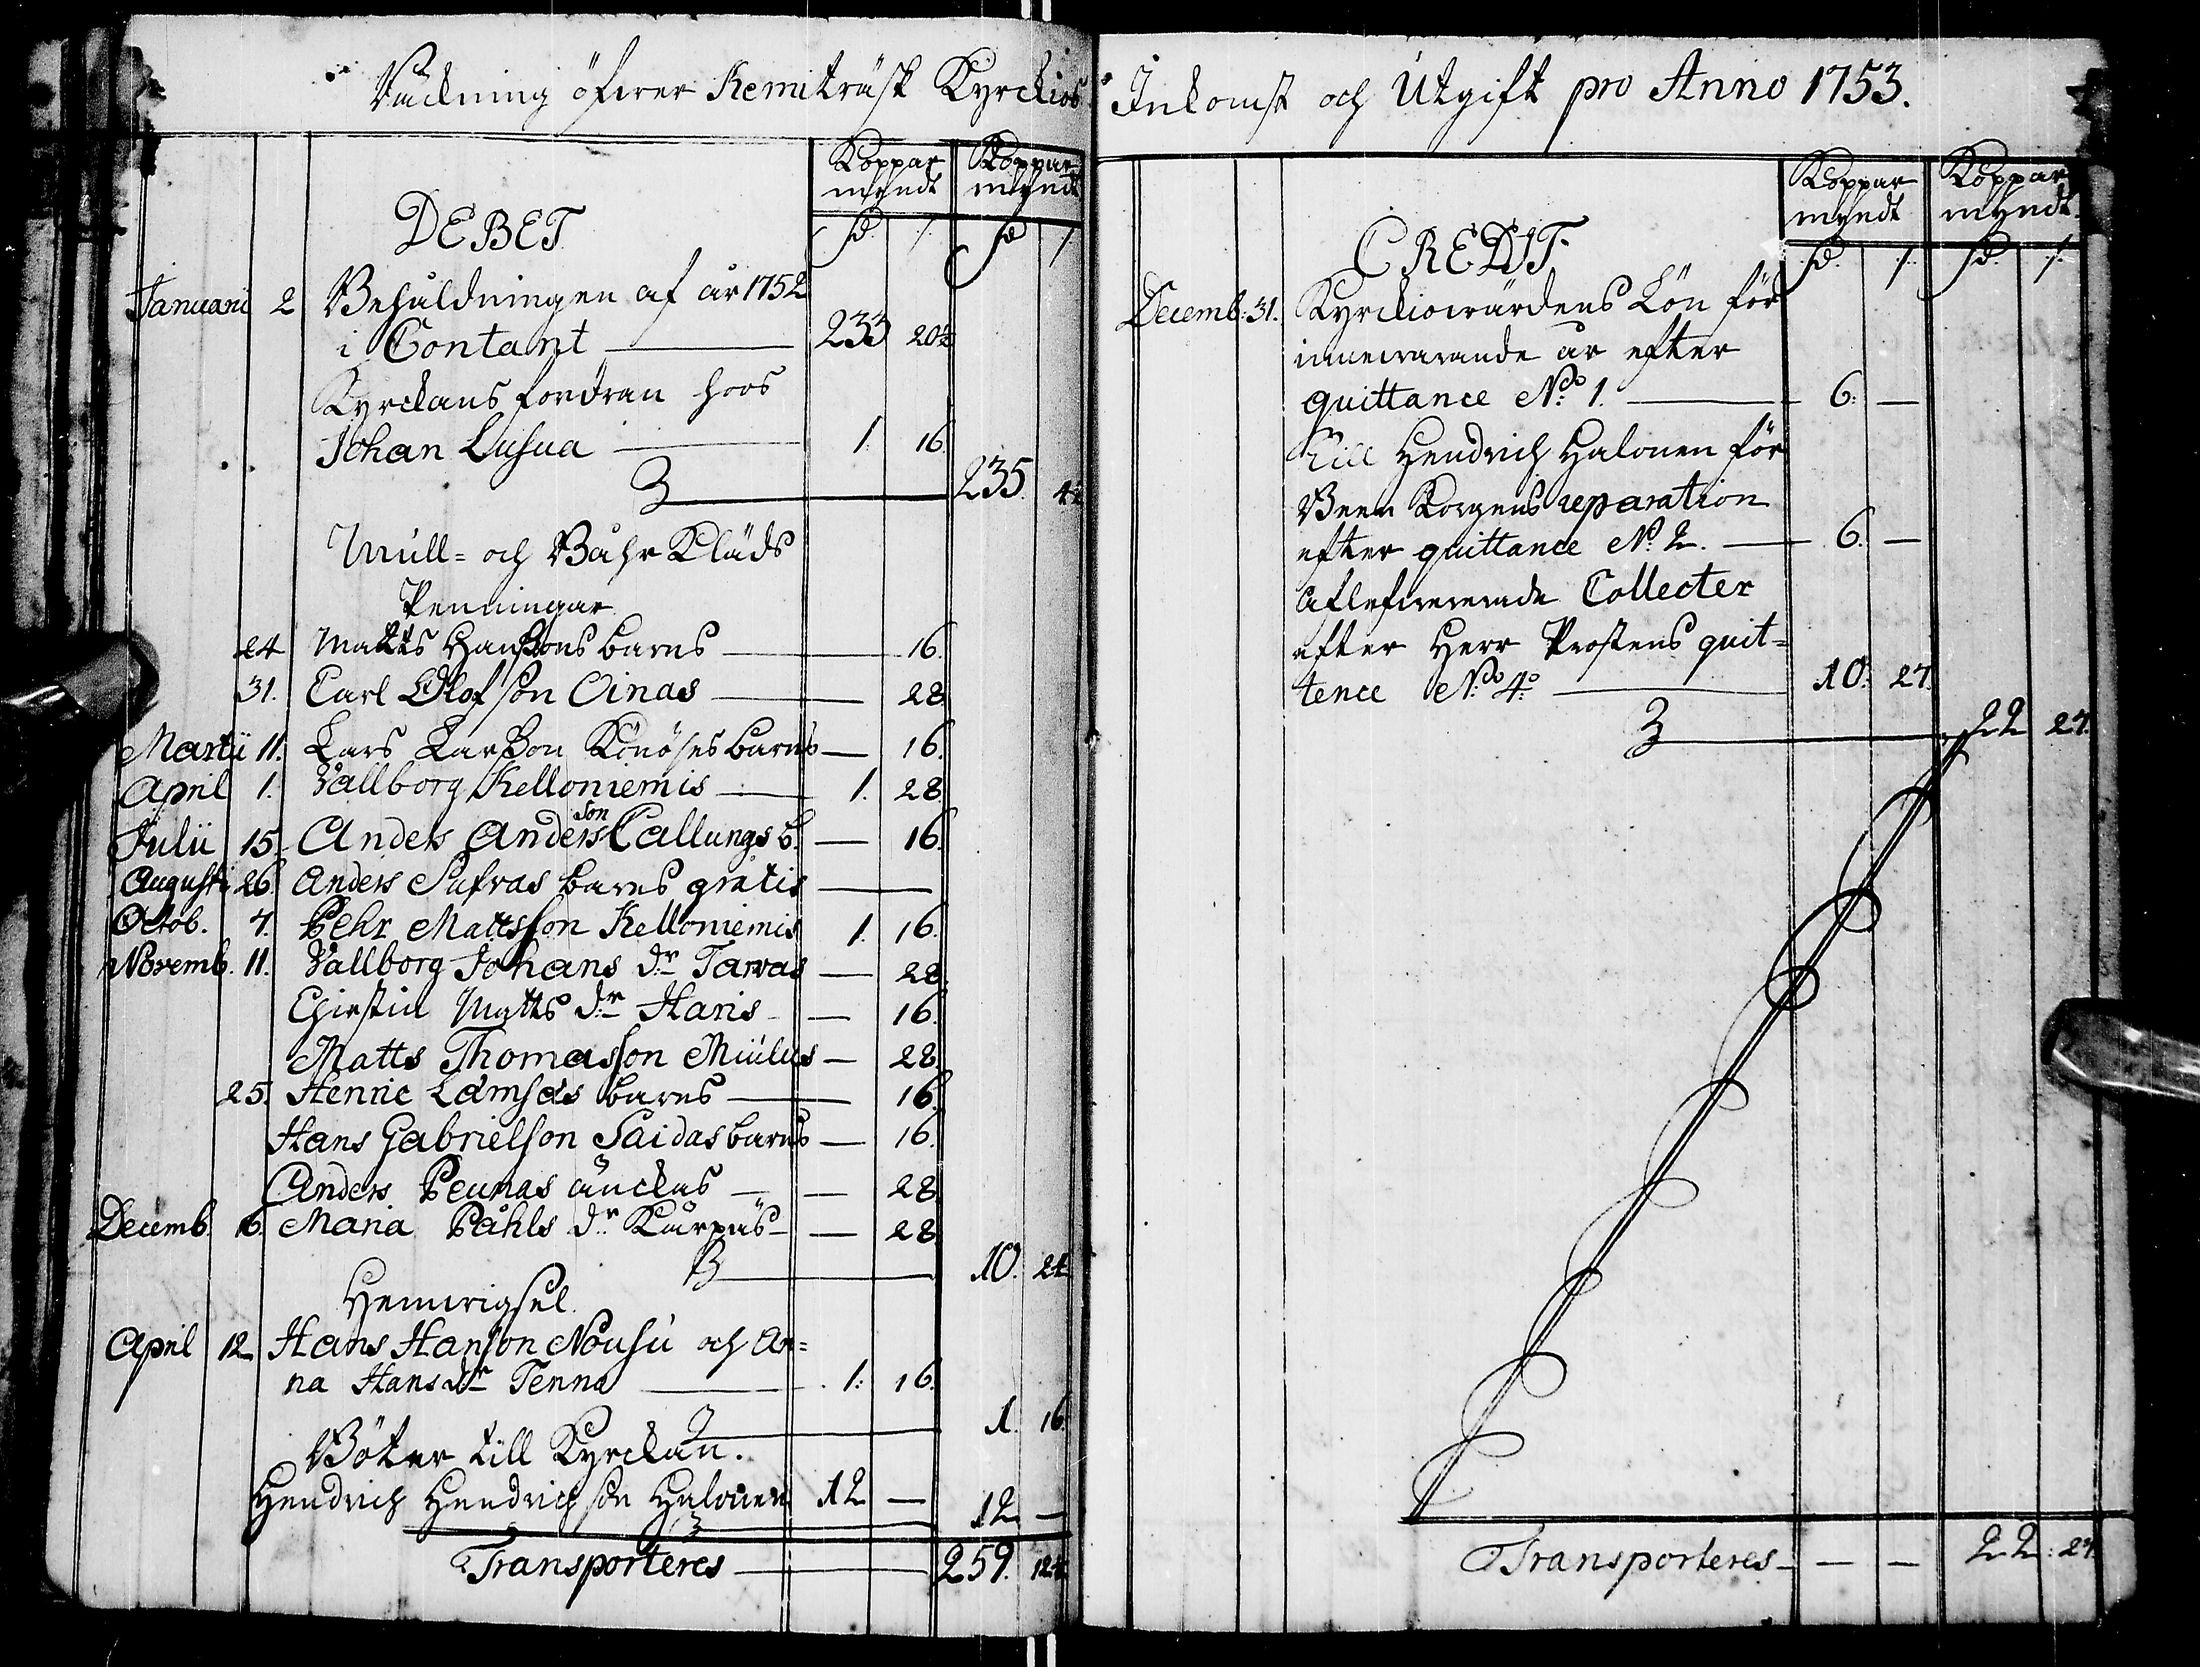 Räckning öfwer Kemiträsk Kyrckios
Koppar Koppar
myndt myndt
DEBET
Januari 2 Behåldningen af år 1752
i Contant 233 20½
Kyrckans fordran hoos
Johan Lusua 1. 16.
235. 4½
Mull= och Båhr Kläds
Penningar
24 Matts Hanßons barns 16.
31. Carl Olofson Oinas 28.
Martii 11. Lars Larßon Könöses barns — 16.
April 1. Vallborg Kelloniemis 1. 28.
Julii 15. Anders Andersson Callungs b. — 16.
Augusti 26. Anders Sufvas barns gratis
Octob. 7. Pehr Mattsson Kelloniemis 1. 16.
Novemb. 11. Vallborg Johans dr Tarvas — 28.
Chirstin Matts dr Haris — 16.
Matts Thomasson Miulus — 28.
25. Henric Lamsas barns — 16.
Hans Gabrielson Saidas barns — 16.
Anders Peunas änckas — 28.
Decemb. 6. Maria Påhls dr Kurpas — 28.
10. 24.
Hemwigsel.
April 12 Hans Hanson Nousu och An=
na Hans dr Tenna 1. 16.
1. 16.
Böter till Kyrckan.
Hendrich Hendrichson Halonen 12 —
12 —
Transporteres 259. 12½
Inkomst och Utgift pro Anno 1753.
Koppar Koppar
myndt myndt
CREDIT.
Decemb: 31. Kyrckiowärdens Lön för
innewarande år efter
quittance No 1. 6. —
Till Hendrich Halonen för
Been Korgens reparation
efter quittance No. 2. 6. —
Aflefwererade Collecter
efter Herr Prostens quit=
tence No. 4. 10. 27.
22 27.
Transporteres — — 22. 27.